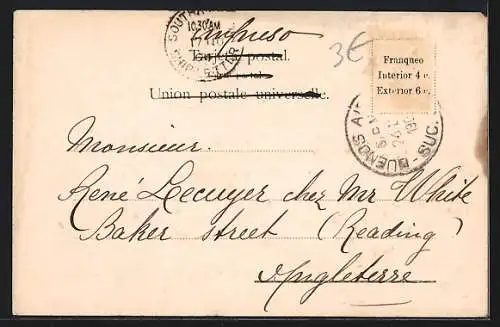 SOUTHA
10.30AM
Impreso
3€
Tarjeta postal.
Union postale universelle.
Franqueo
Interior 4 c.
Exterior 6 c.
BUENOS AI SUC.
Monsieur.
René Lecuyer chez Mr White
Baker Street (Reading)
Angleterre